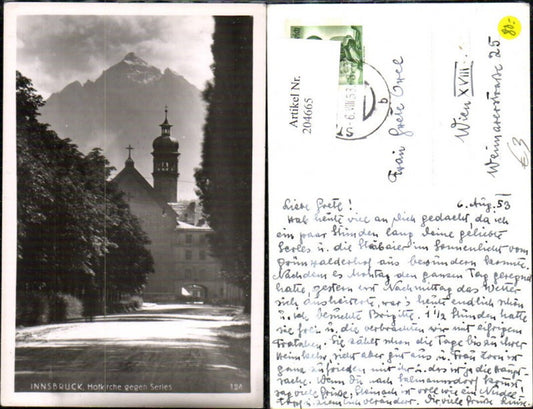 INNSBRUCK, Hofkirche gegen Serles
124
80.-
Artikel Nr.
204665
-6.VIII.53
b
Frau Grete Orel
Wien XVIII
Weimarerstrasse 25
€3
Liebe Grete! 6. Aug. 53
Hab heute viel an dich gedacht, da ich
ein paar Stunden lang deine geliebte
Serles u. die Stubaier im Sonnenlicht vom
Grünwalderhof aus bewundern konnte.
Nachdem es Montag den ganzen Tag geregnet
hatte, gestern erst Nachmittag das Wetter
sich ausheiterte, war's heute endlich schön
u. ich besuchte Brigitte. 1 1/2 Stunden hatte
sie frei u. die verbrachten wir mit eifrigem
Tratschen. Sie zählt schon die Tage bis zu ihrer
Heimkehr, sieht aber gut aus u. Frau ist
ganz zufrieden mit ihr u. das ist ja die Haupt-
sache. Wenn Du nach kommst,
sag viele Grüsse. Steinach ist voll wie ein
Dir viele Grüsse